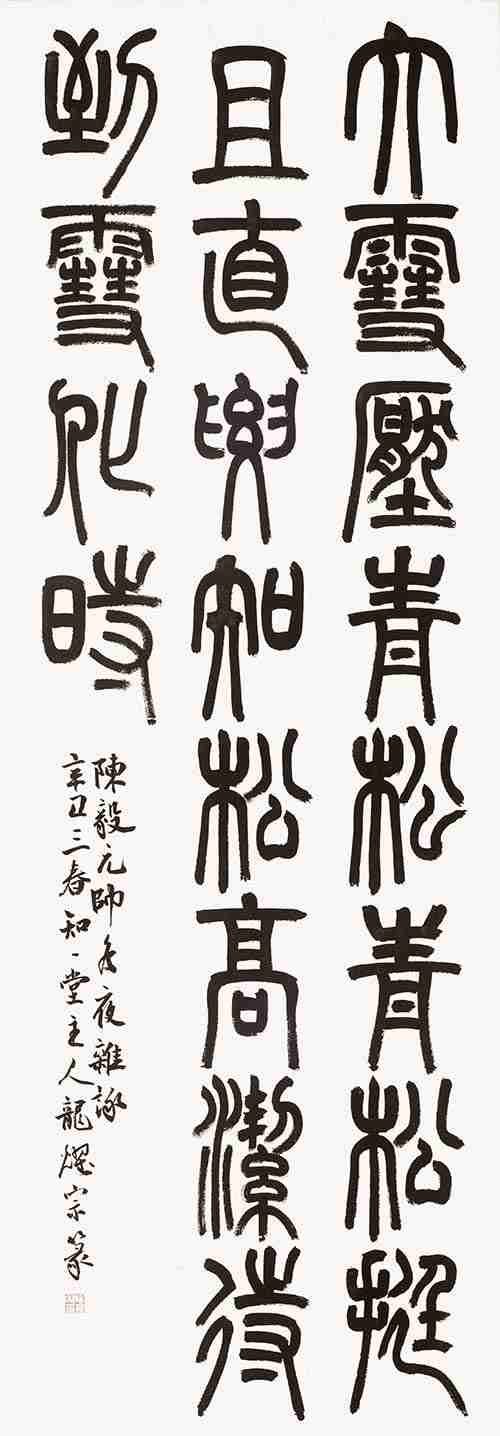 大雪壓青松青松挺
且直要知松高潔待
到雪化時
陳毅元帥冬夜雜詠
辛丑三春知一堂主人龍燿宗篆